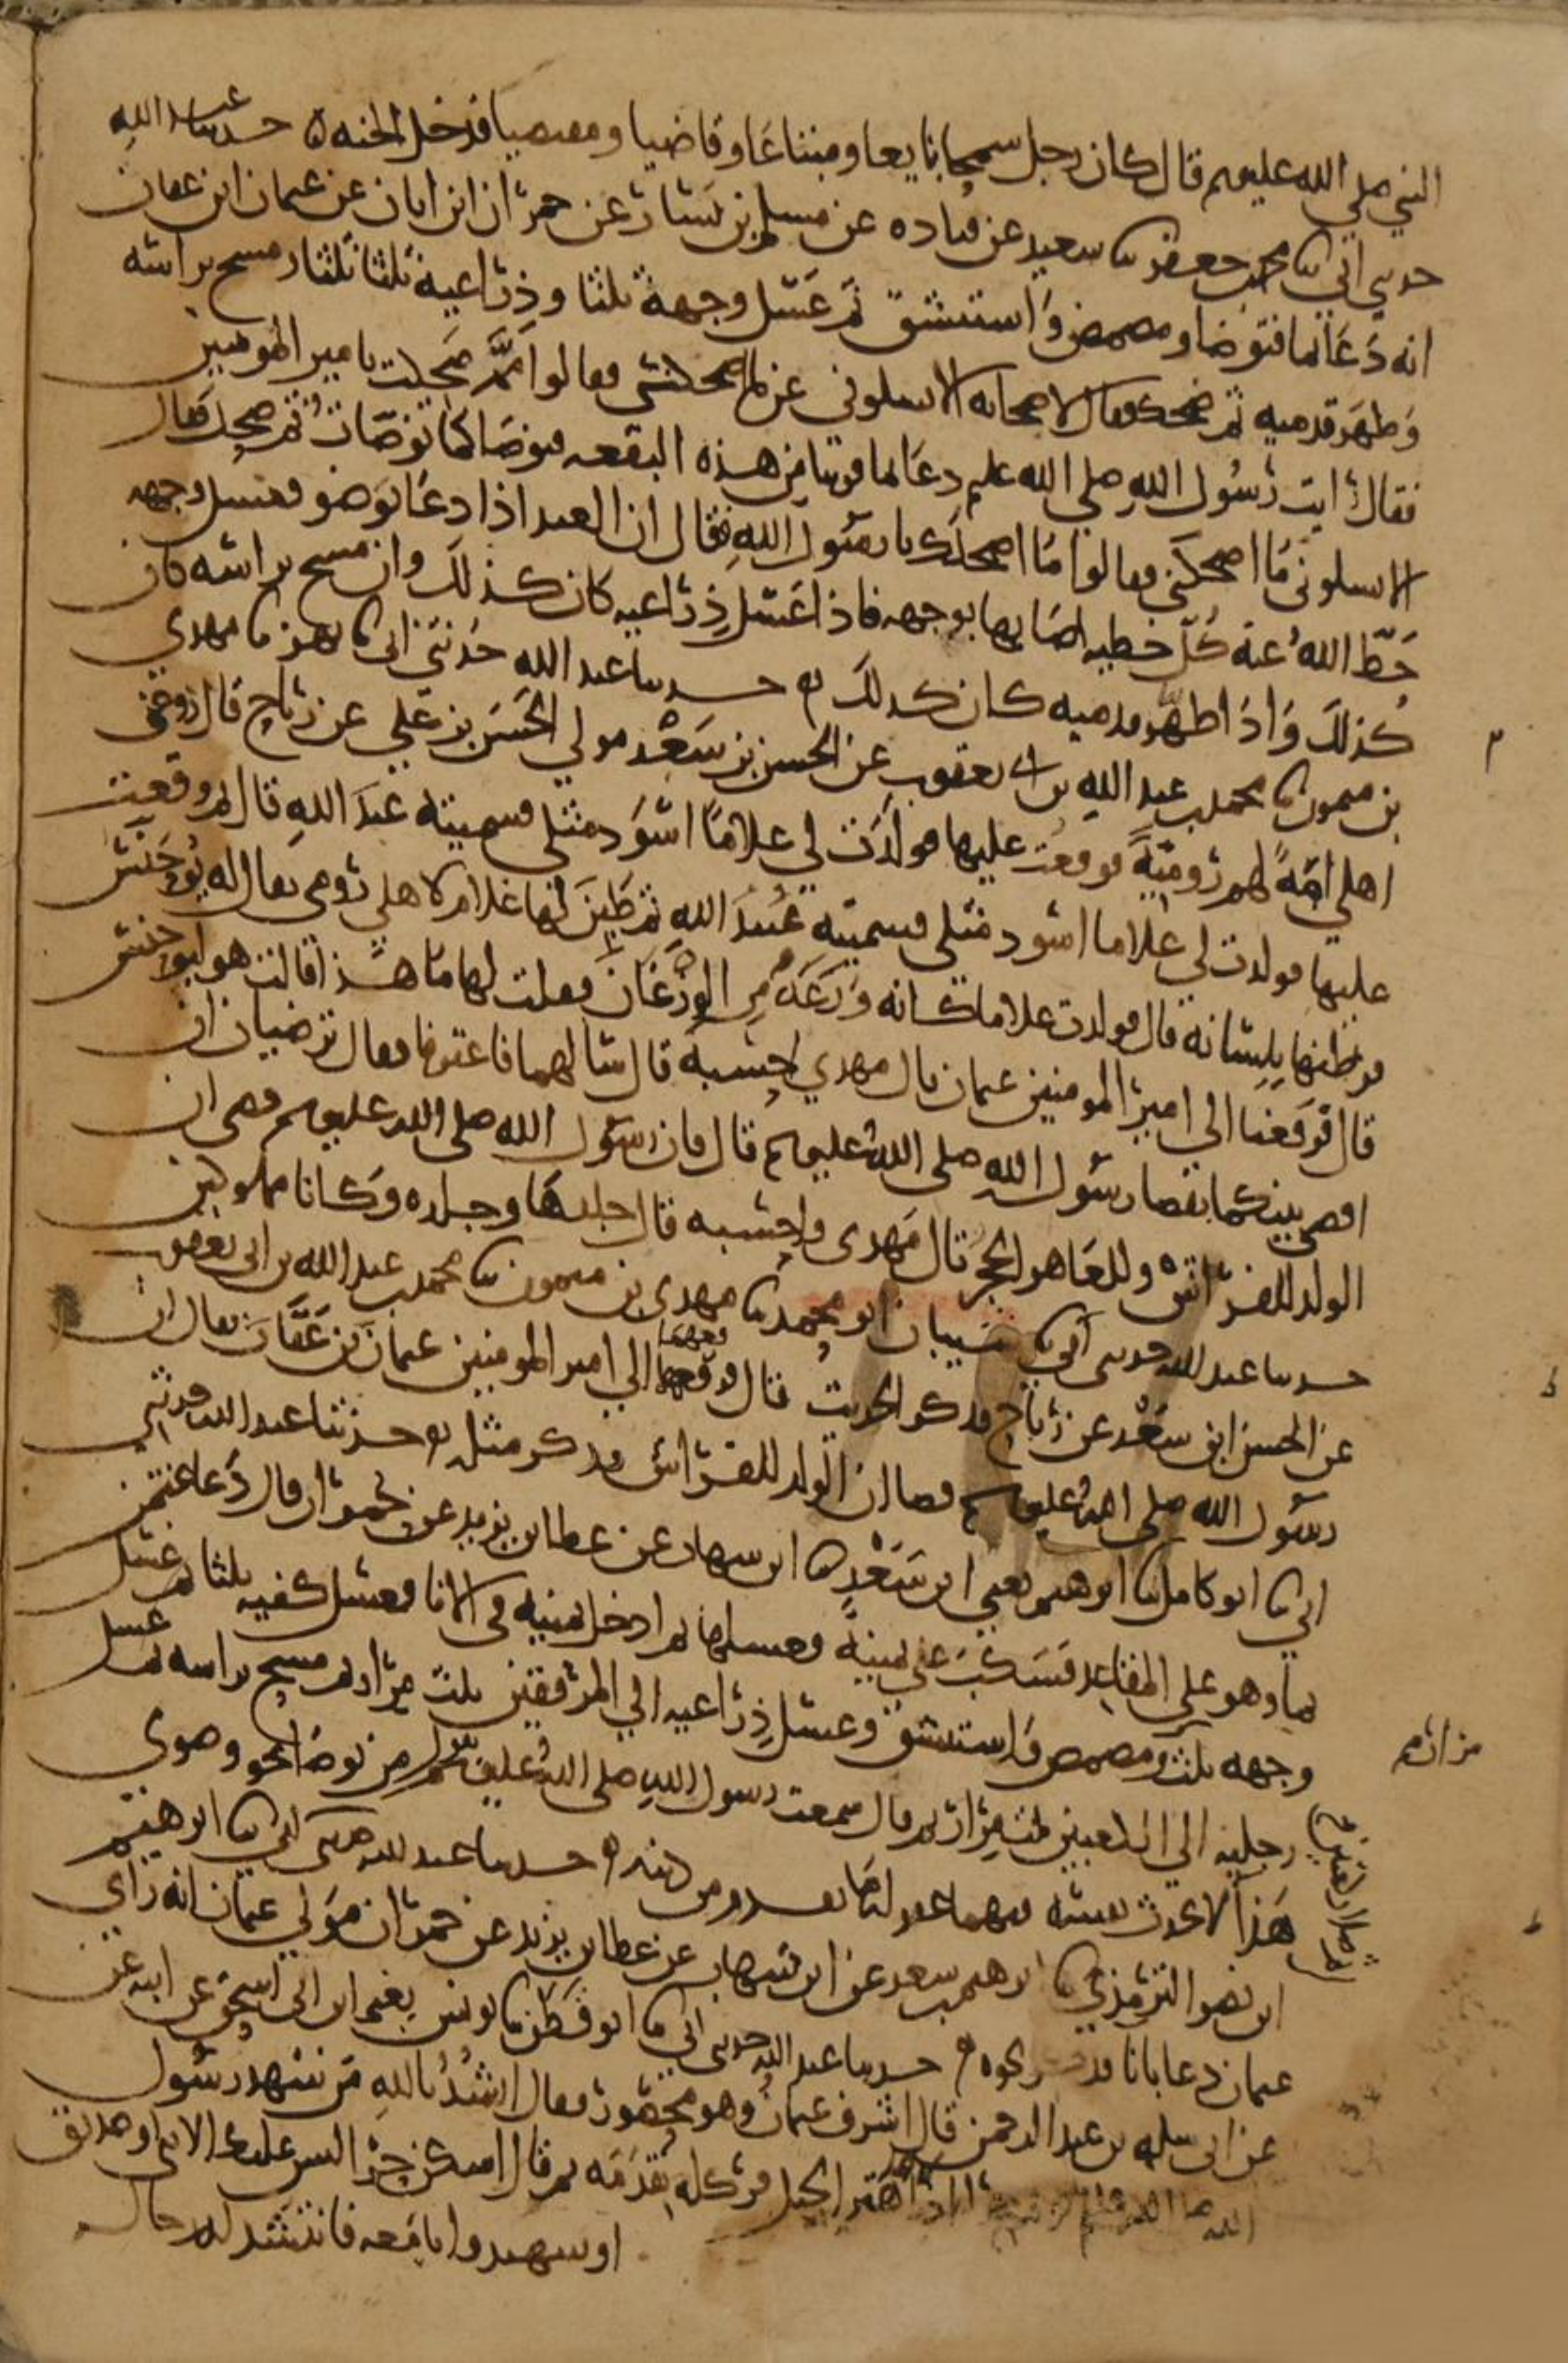 النبي صلي الله عليه وسلم قال كان رجل سمحا بايعا ومبتاعا وقاضيا ومقتضيا فدخل الجنه ه حدثنا عبد الله
حدثني ابي ثنا محمد بن جعفر ثنا سعيد عن قتاده عن مسلم بن يسار عن حمران ابن ابان عن عثمان ابن عفان
انه دعا بما فتوضا ومضمض واستنشق ثم غسل وجهه ثلثا وذراعيه ثلثا ثلثا ومسح براسه
وطهر قدميه ثم ضحك فقال لاصحابه الا تسلوني عن ما اضحكني فقالوا مم ضحكت يا مير المومنين
فقال رايت رسول الله صلي الله عليه دعا بما قريبا من هذه البقعه فتوضا كما توضات ثم ضحك فقال
الا تسلوني ما اضحكني فقالوا ما اضحكك يا رسول الله فقال ان العبد اذا دعا بوضو فغسل وجهه
حط الله عنه كل خطيه اصابها بوجهه فاذا غسل ذراعيه كان كذلك وان مسح براسه كان
كذلك واذا طهر قدميه كان كذلك ه حدثنا عبد الله حدثني ابي ثنا بهز ثنا مهدي
بن ميمون ثنا محمد بن عبد الله بن ابي يعقوب عن الحسن بن سعد مولي الحسن بن علي عن رباح قال زوجني
اهلي امة لهم رومية فوقعت عليها فولدت لي غلاما اسود مثلي فسميته عبد الله قال ثم وقعت
عليها فولدت لي غلاما اسود مثلي فسميته عبيد الله ثم طبن لها غلام لاهلي رومي يقال له يوحنس
فراطنها بلسانه قال فولدت غلاما كانه وزغة من الوزغان فقلت لها ما هذا قالت هو ليوحنس
قال فرفعنا الي امير المومنين عثمان قال مهدي احسبه قال سالهما فاعترفا فقال ترضيان ان
اقضي بينكما بقضا رسول الله صلي الله عليه وسلم قال فان رسول الله صلي الله عليه وسلم قضي ان
الولد للفراش وللعاهر الحجر قال مهدي واحسبه قال جلدها وجلده وكانا مملوكين
حدثنا عبد الله حدثني ابي ثنا شيبان ابو محمد ثنا مهدي بن ميمون ثنا محمد بن عبد الله بن ابي يعقوب
عن الحسن ابن سعد عن رباح فذكر الحديث قال فرفعهما الي امير المومنين عثمان بن عفان فقال ان
رسول الله صلي الله عليه وسلم قضا ان الولد للفراش فذكر مثله ه حدثنا عبد الله حدثني
ابي ثنا ابو كامل ثنا ابرهيم يعني ابن سعد ثنا ابن شهاب عن عطا بن يزيد عن حمران قال دعا عثمن
بما وهو علي المقاعد فسكب علي يمينه فغسلها ثم ادخل يمينه في الانا فغسل كفيه ثلثا ثم غسل
وجهه ثلث ومضمض واستنشق وغسل ذراعيه الي المرفقين ثلث مرار ثم مسح براسه ثم غسل
رجليه الي الكعبين ثلث مرار ثم قال سمعت رسول الله صلي الله عليه وسلم يقول من توضا نحو وضوي
هذا لا يحدث نفسه فيهما غفر له ما تقدم من ذنبه ه حدثنا عبد الله حدثني ابي ثنا ابرهيم
ابن نصر الترمذي ثنا ابرهيم بن سعد عن ابن شهاب عن عطا بن يزيد عن حمران مولي عثمان انه راي
عثمان دعا بانا فذكر نحوه ه حدثنا عبد الله حدثني ابي ثنا ابو قطن ثنا يونس يعني ابن ابي اسحق عن ابيه عن
عن ابي سلمه بن عبد الرحمن قال اشرف عثمان وهو محصور فقال انشد بالله من شهد رسول
الله اهتز الجبل فركله بقدمه ثم قال اسكن حرا ليس عليك الا نبي او صديق
او شهيد وانا معه فانتشد له رجال
من اثم